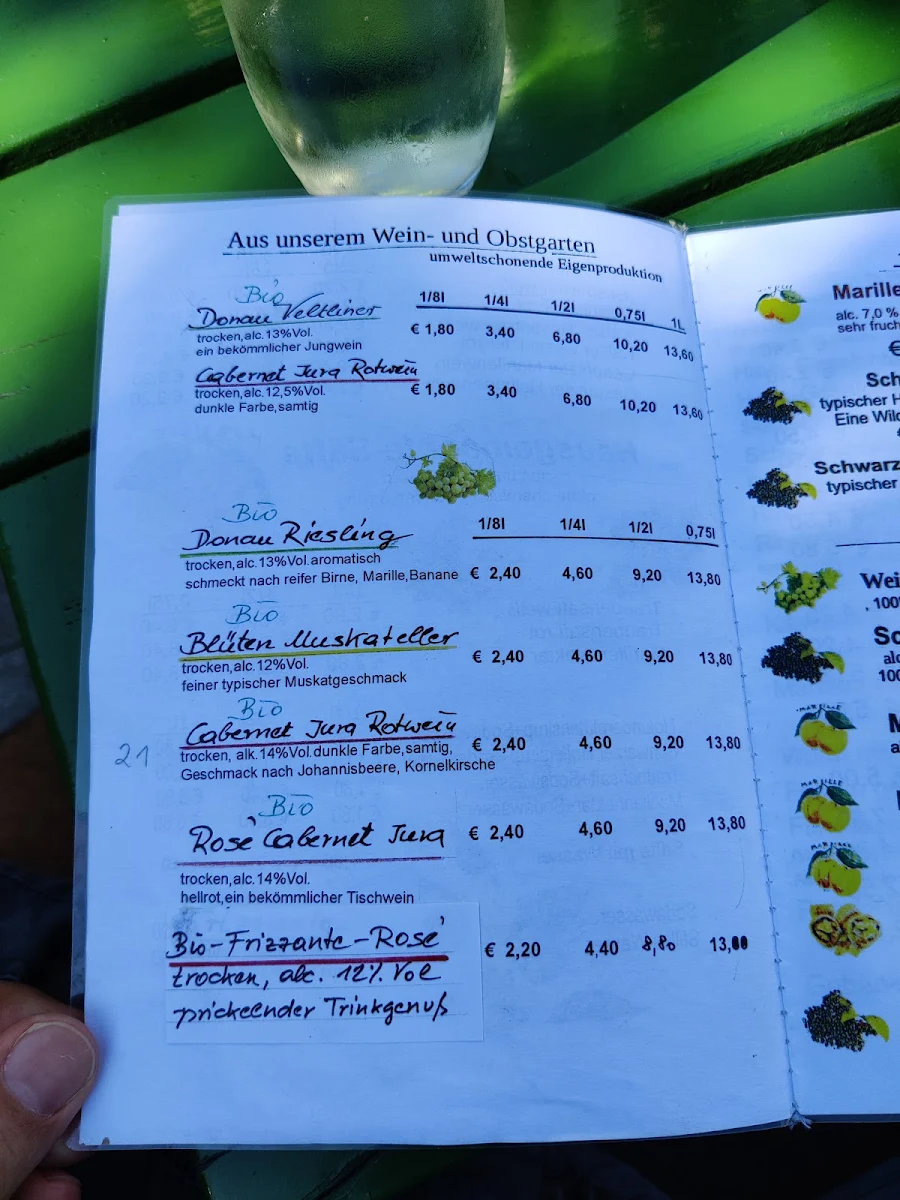 Aus unserem Wein- und Obstgarten
umweltschonende Eigenproduktion
Bio
Donau Veltliner 1/8l 1/4l 1/2l 0,75l 1L
trocken,alc.13%Vol. € 1,80 3,40 6,80 10,20 13,60
ein bekömmlicher Jungwein
Cabernet Jura Rotwein
trocken,alc.12,5%Vol. € 1,80 3,40 6,80 10,20 13,60
dunkle Farbe,samtig
Bio
Donau Riesling 1/8l 1/4l 1/2l 0,75l
trocken,alc.13%Vol.aromatisch
schmeckt nach reifer Birne, Marille,Banane € 2,40 4,60 9,20 13,80
Bio
Blüten Muskateller
trocken,alc.12%Vol. € 2,40 4,60 9,20 13,80
feiner typischer Muskatgeschmack
Bio
Cabernet Jura Rotwein
21 trocken, alk.14%Vol.dunkle Farbe,samtig, € 2,40 4,60 9,20 13,80
Geschmack nach Johannisbeere, Kornelkirsche
Bio
Rosé Cabernet Jura € 2,40 4,60 9,20 13,80
trocken,alc.14%Vol.
hellrot,ein bekömmlicher Tischwein
Bio-Frizzante-Rosé € 2,20 4,40 8,80
trocken, alc. 12% Vol
prickelnder Trinkgenuß
Marille
alc. 7,0 %
sehr fruch
€
Sch
typischer H
Eine Wild
Schwarz
typischer
Wei
, 100%
Sc
alc
100
M
a